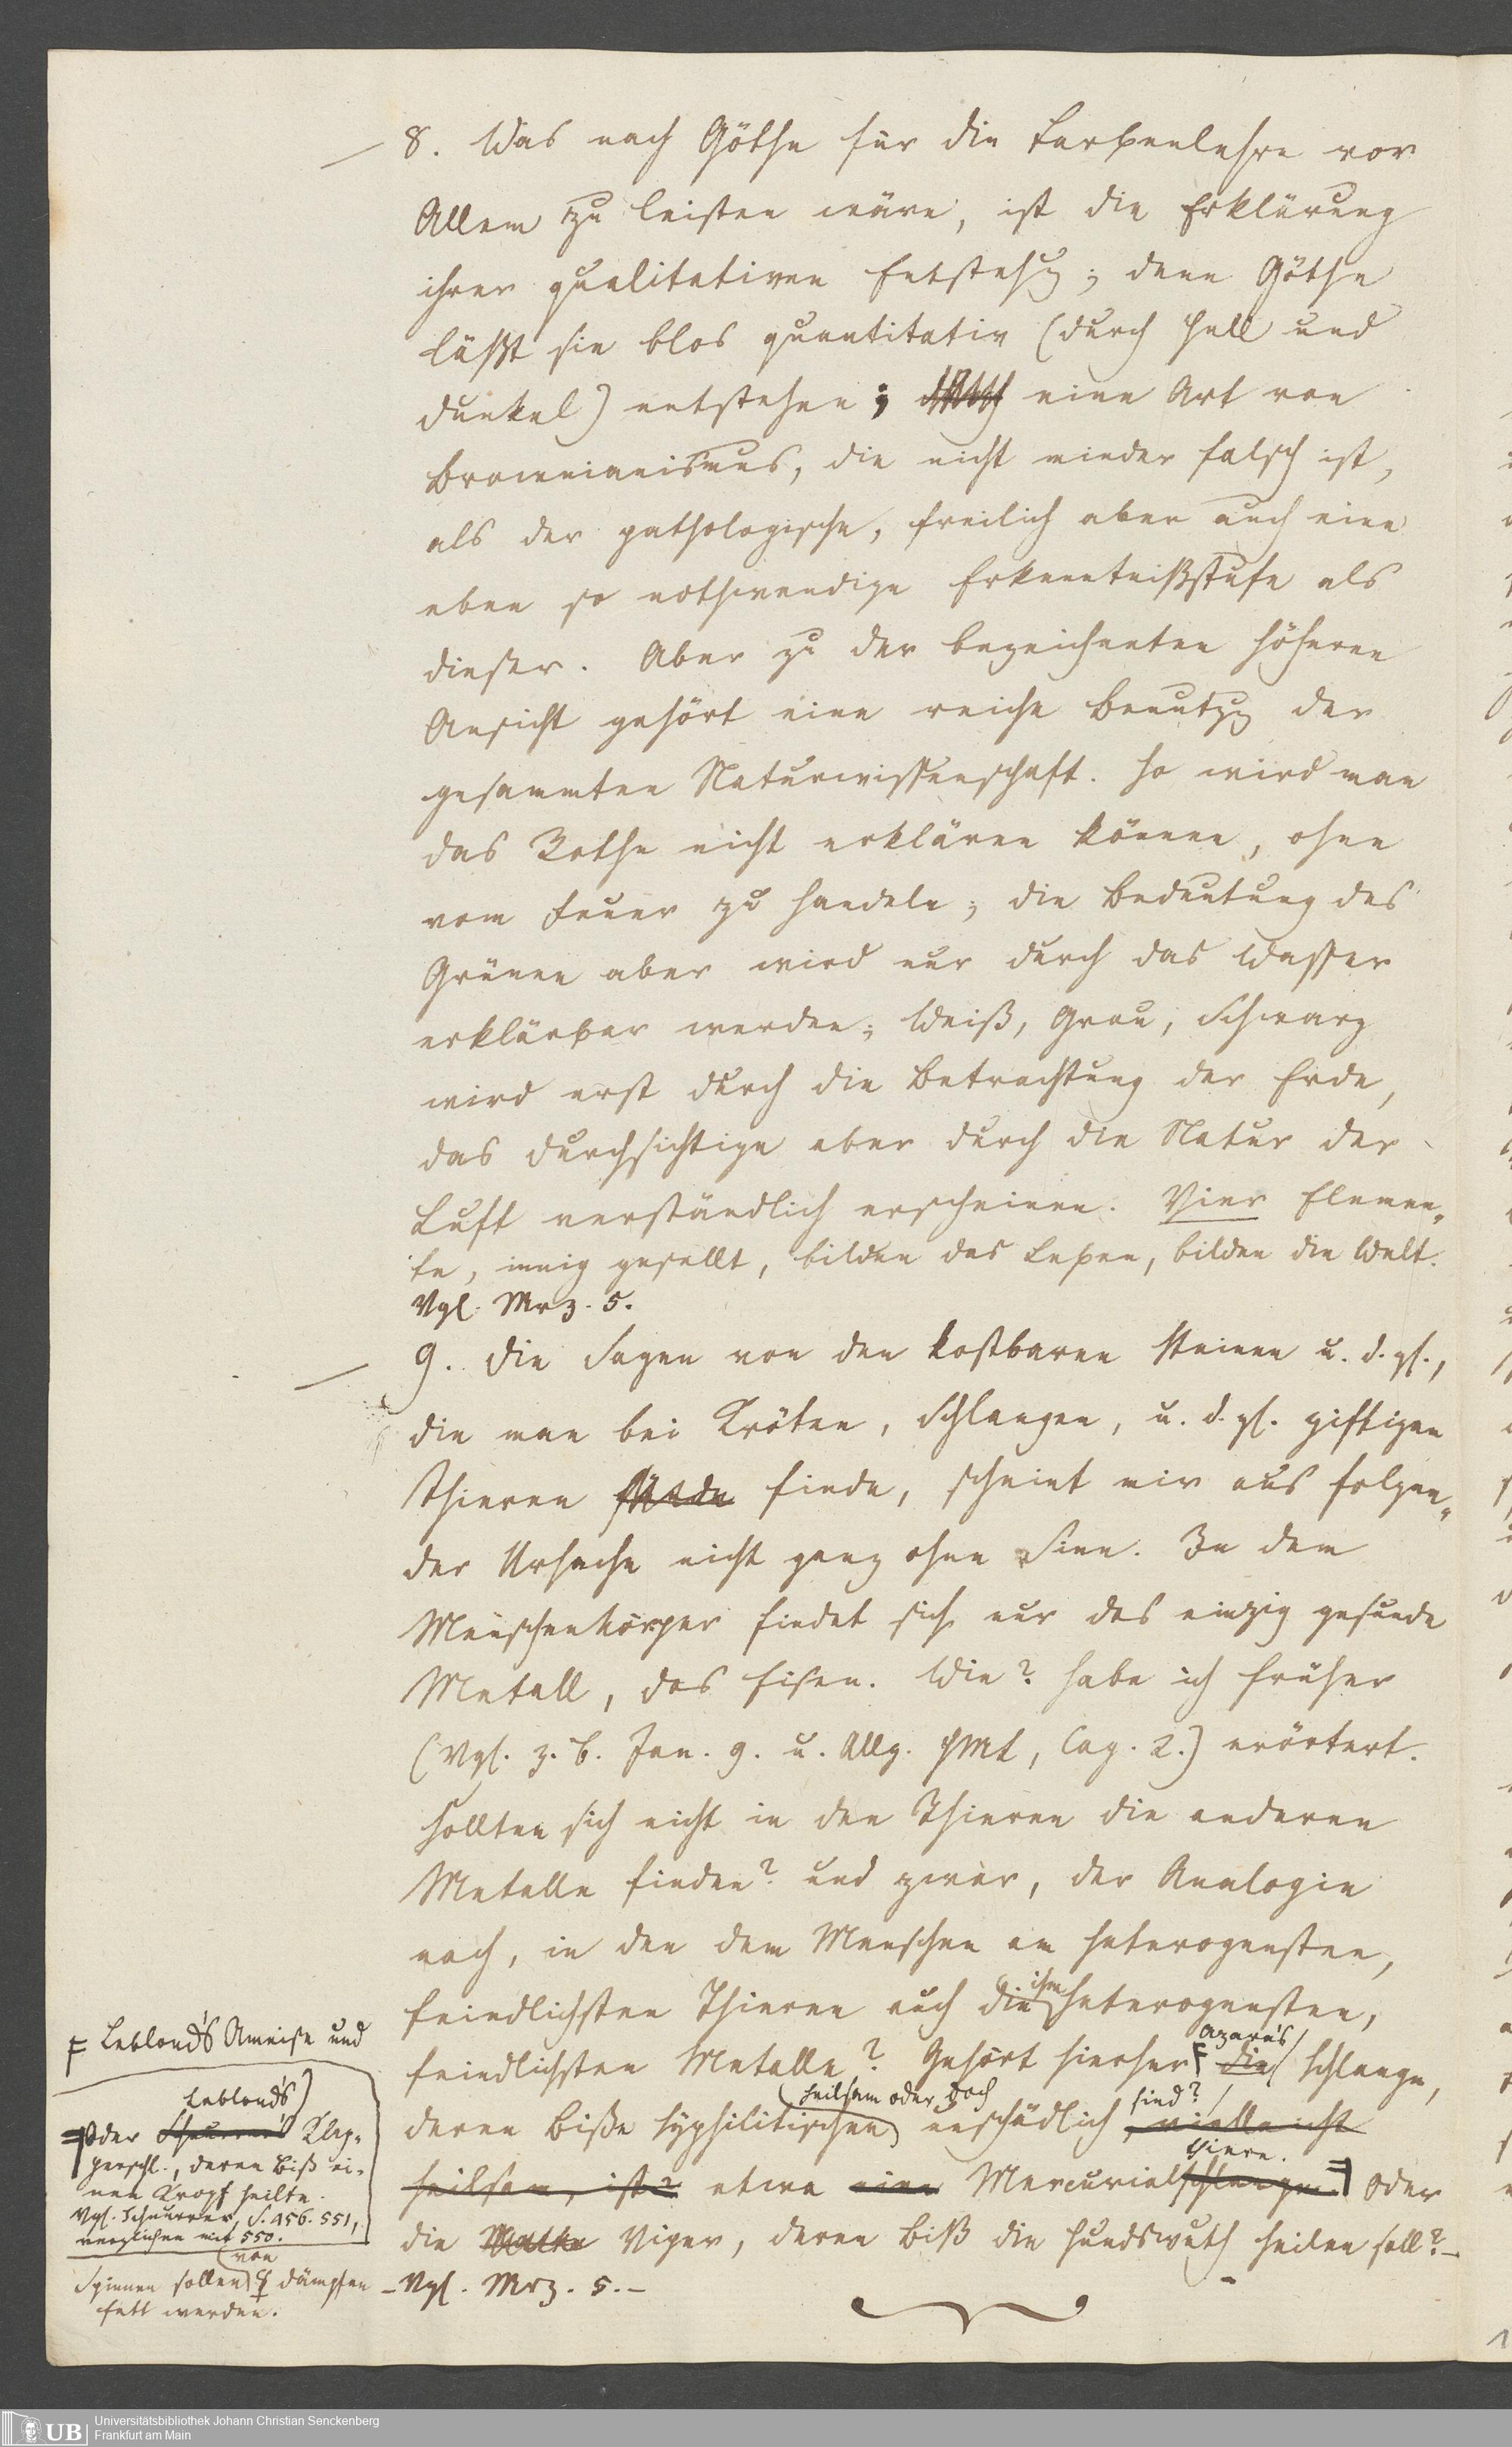 8. Was nach Göthe für die Farbenlehre vor
Allem zu leisten wäre, ist die Erklärung
ihrer qualitativen Entstehg; denn Göthe
läßt sie blos quantitativ (durch Hell und
Dunkel) entstehen; eine Art von
Brownianismus, die nicht minder falsch ist,
als der pathologische, freilich aber auch eine
eben so nothwendige Erkenntnißstufe als
dieser. Aber zu der bezeichneten höheren
Ansicht gehört eine reiche Benutzg der
gesammten Naturwissenschaft. So wird man
das Rothe nicht erklären können, ohne
vom Feuer zu handeln; die Bedeutung des
Grünen aber wird nur durch das Wasser
erklärbar werden; Weiß, Grau, Schwarz
wird erst durch die Betrachtung der Erde,
das Durchsichtige aber durch die Natur der
Luft verständlich erscheinen. Vier Elemen-
te, innig gesellt, bilden das Leben, bilden die Welt.
Vgl. Mrz. 5.
9. Die Sagen von den kostbaren Steinen u. d. gl.,
die man bei Kröten, Schlangen, u. d. gl. giftigen
Thieren finde, scheint mir aus folgen-
der Ursache nicht ganz ohne Sinn. In dem
Menschenkörper findet sich nur das einzig gesunde
Metall, das Eisen. Wie? habe ich früher
(Vgl. z. B. Jan. 9. u. Allg. HMt, Cap. 2.) erörtert.
Sollten sich nicht in den Thieren die anderen
Metalle finden? und zwar, der Analogie
nach, in den dem Menschen am heterogensten,
feindlichsten Thieren auch die ihm heterogensten,
feindlichsten Metalle? Gehört hierher die Azara's Schlange,
deren Bisse Syphilitischen heilsam oder doch unschädlich sind? , vielleicht
heilsam, ist? etwa eine Mercurialschlange thiere. Oder
die Viper, deren Biß die Hundswuth heilen soll? –
– Vgl. Mrz. 5. –
F Leblond's Ameise und
Oder Scheurrer's Leblond's Klap-
perschl., deren Biß ei-
nen Kropf heilte.
Vgl. Schnurrer, S. 456. 551,
verglichen mit 550.
Spinnen sollen von ☿ Dämpfen
fett werden.
UB
Universitätsbibliothek Johann Christian Senckenberg
Frankfurt am Main